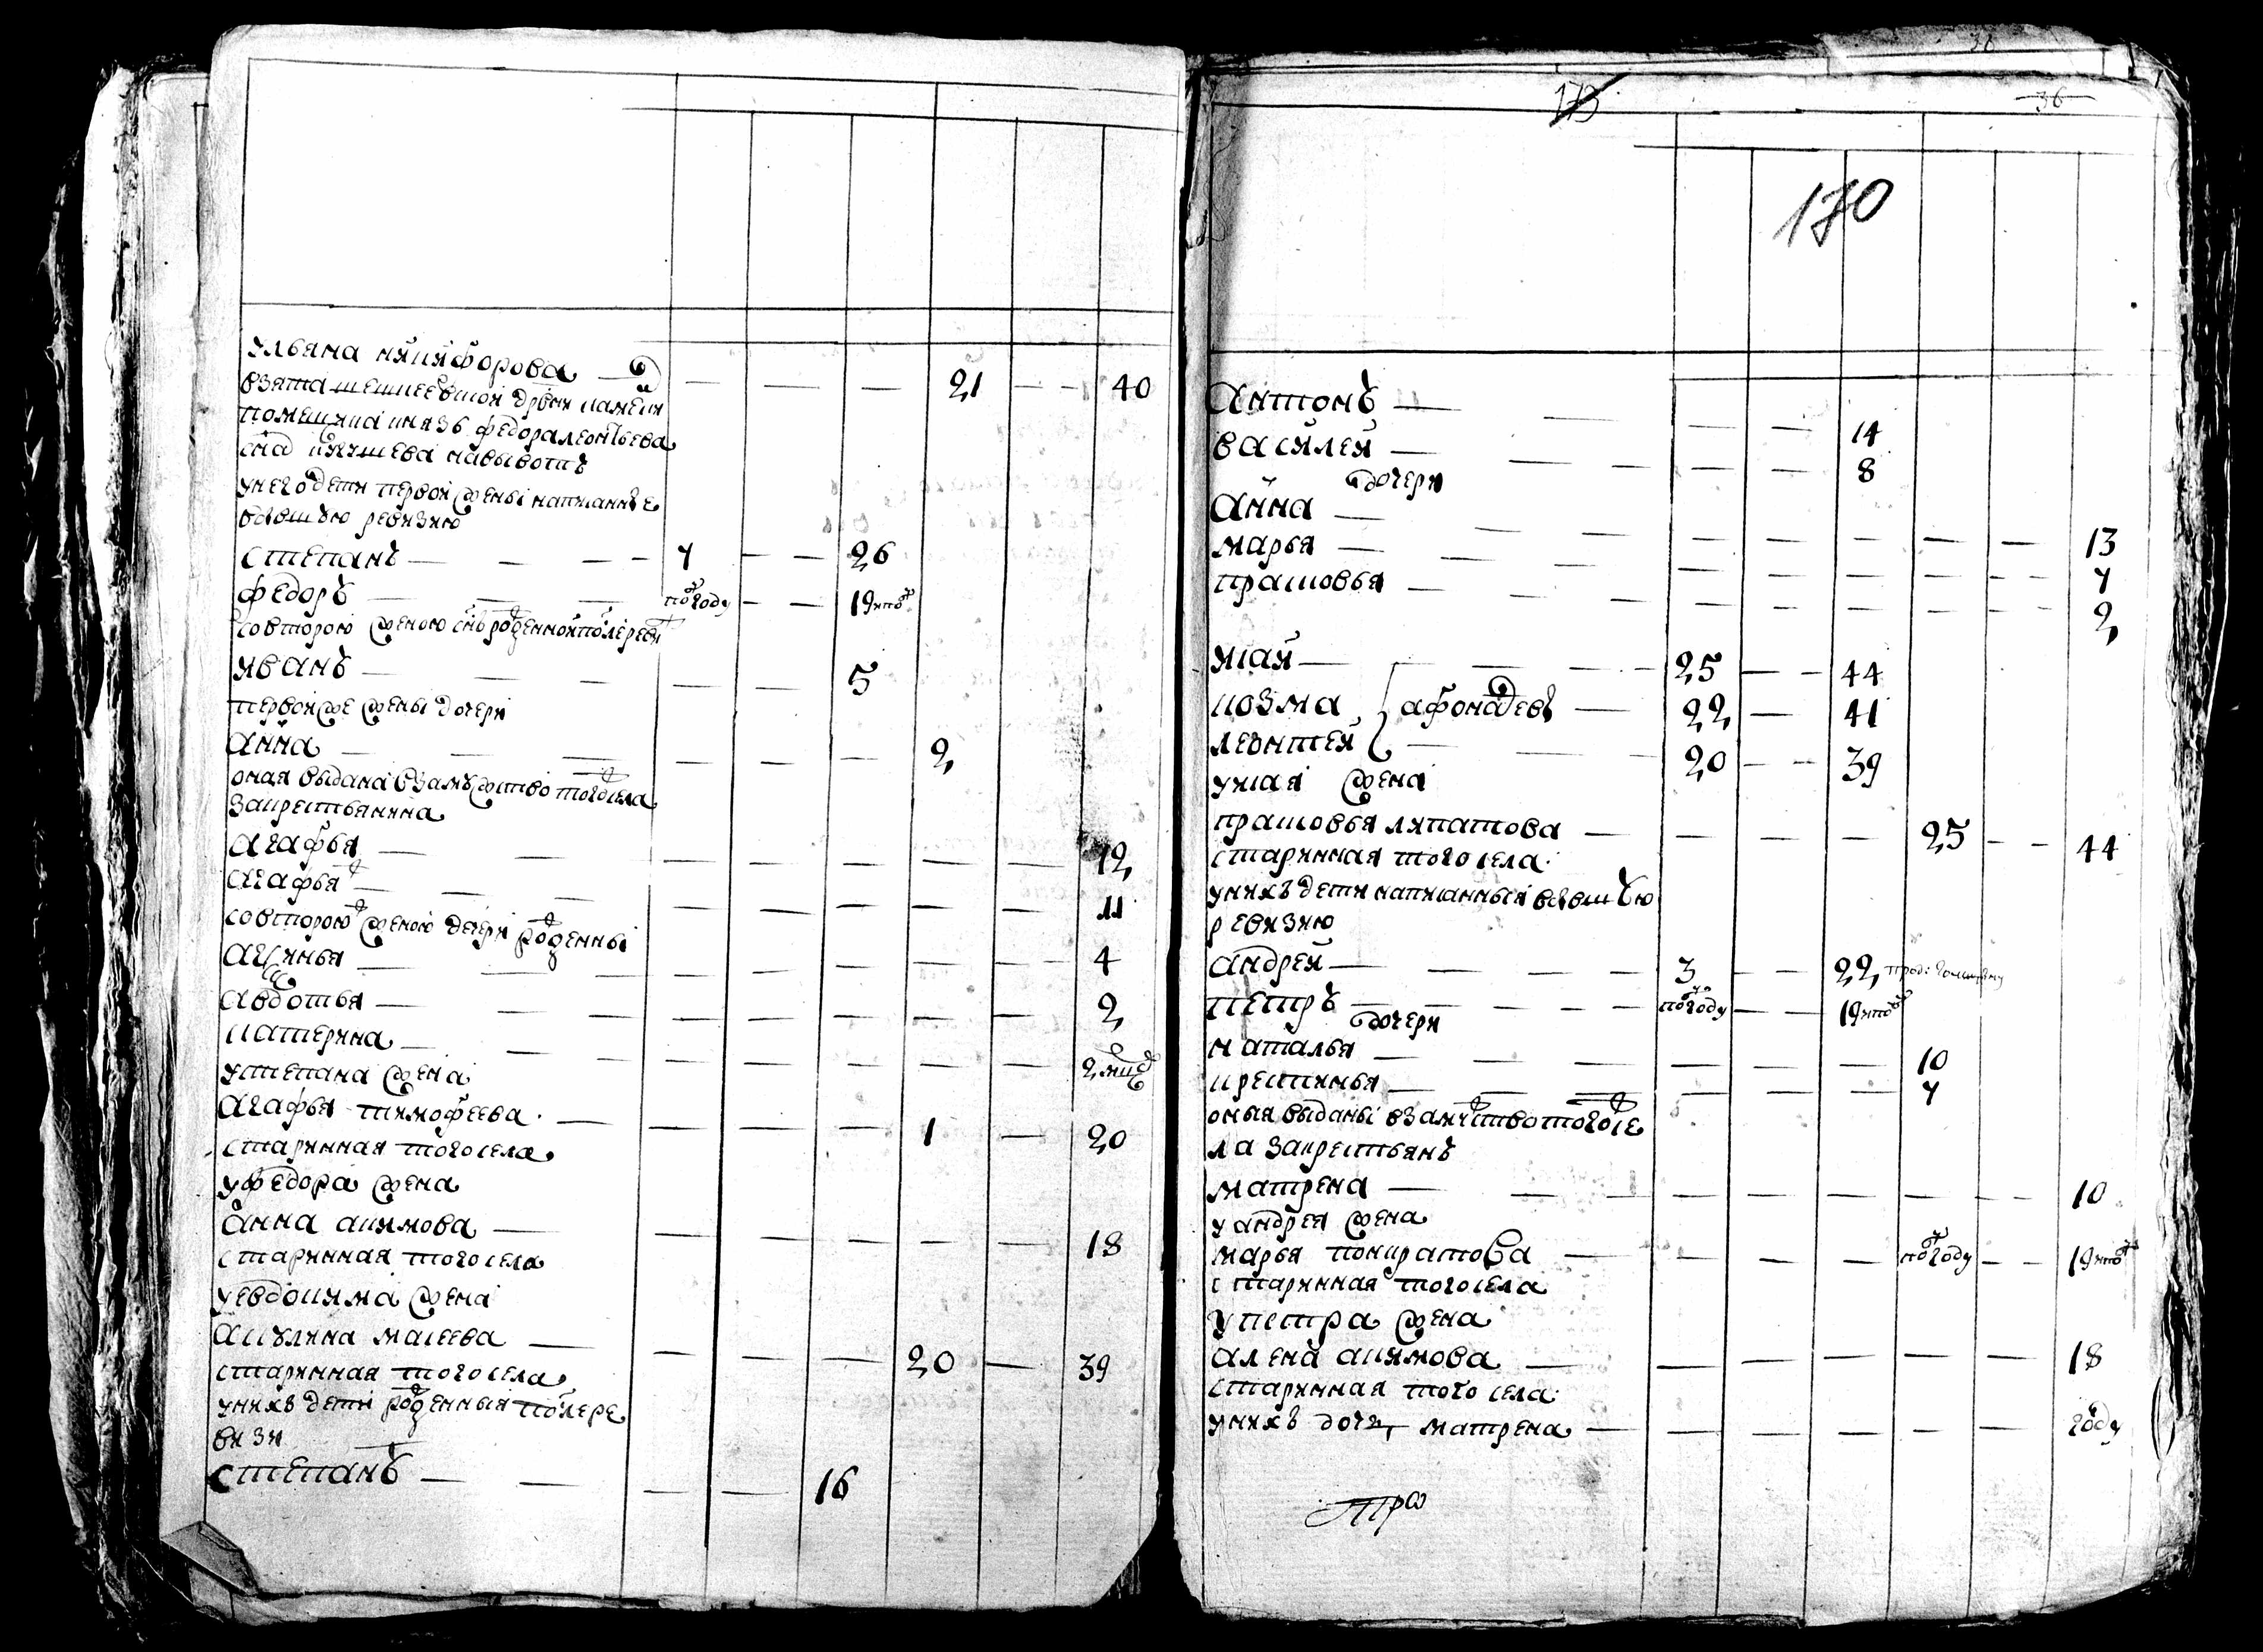 ульяна никифорова — 21 — 40
взята
помещика князь федора леонтьева
сна навывотъ
унего дети первой жены написанные
бывшую ревизию
степанъ — 7 — 26
федоръ — по году — 19 ипо
совторою женою снъ рожденной после реви
иванъ — 5
первой же жены дочери
анна — 2
оная выдана взамужство того села
закрестьянина
агафья — 12
агафья — 11
совторою женою дочери рожденны
аксинья — 4
авдотья — 2
катерина — 2 мц
устепана жена
агафья тимофеева — 1 — 20
старинная того села
уфедора жена
анна акимова — 18
старинная того села
уевдокима жена
акулина масеева — 20 — 39
старинная того села
унихъ дети рожденныя после ре
визи
степанъ — 16
36
173
170
антонъ — 14
василей — 8
дочери
анна — 13
марья — 7
прасковья — 2
исай — 25 — 44
козма афонасевы — 22 — 41
левнтей — 20 — 39
уисая жена
прасковья липатова — 25 — 44
старинная того села
унихъ дети написанныя бывшую
ревизию
андрей — 3 — 22
петръ — по году — 19 ипо
дочери
наталья — 10
крестинья — 7
оныя выданы взамужство того се
ла закрестьянъ
матрена — 10
уандрея жена
марья понкратова — по году — 19 ипо
старинная того села
упетра жена
алена акимова — 18
старинная того села
унихъ дочь матрена — году